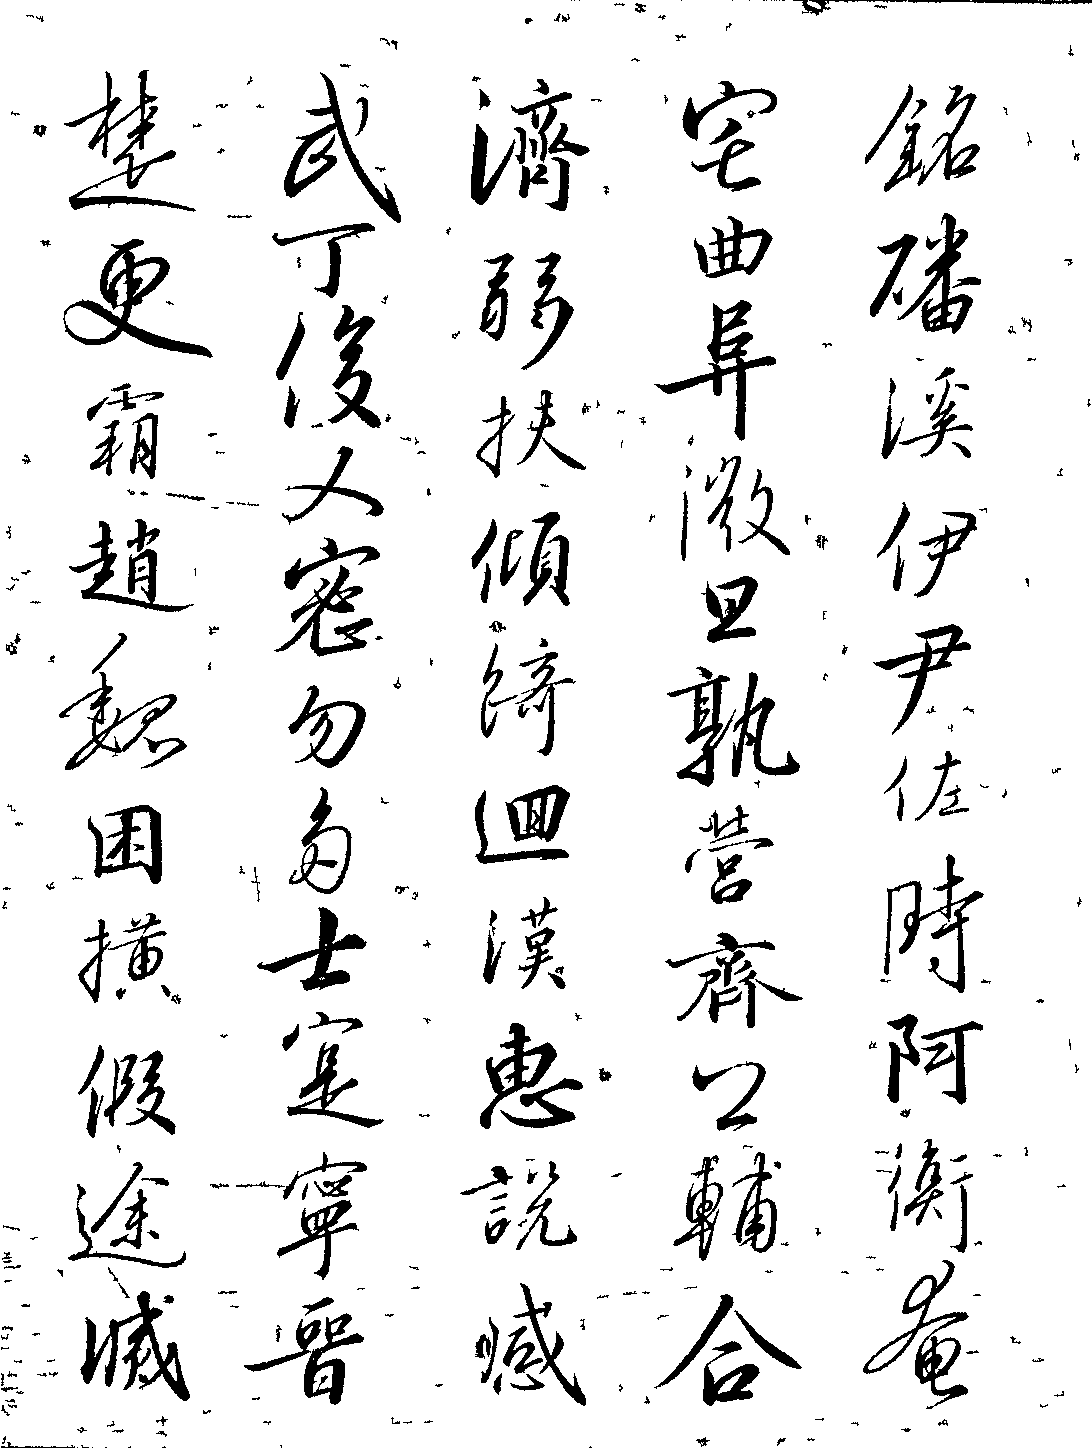 銘磻溪伊尹佐時阿衡奄
宅曲阜微旦孰營齊公輔合
濟弱扶傾綺迴漢惠說憾
武丁俊乂密勿多士寔寧晉
楚更霸趙魏困橫假途滅